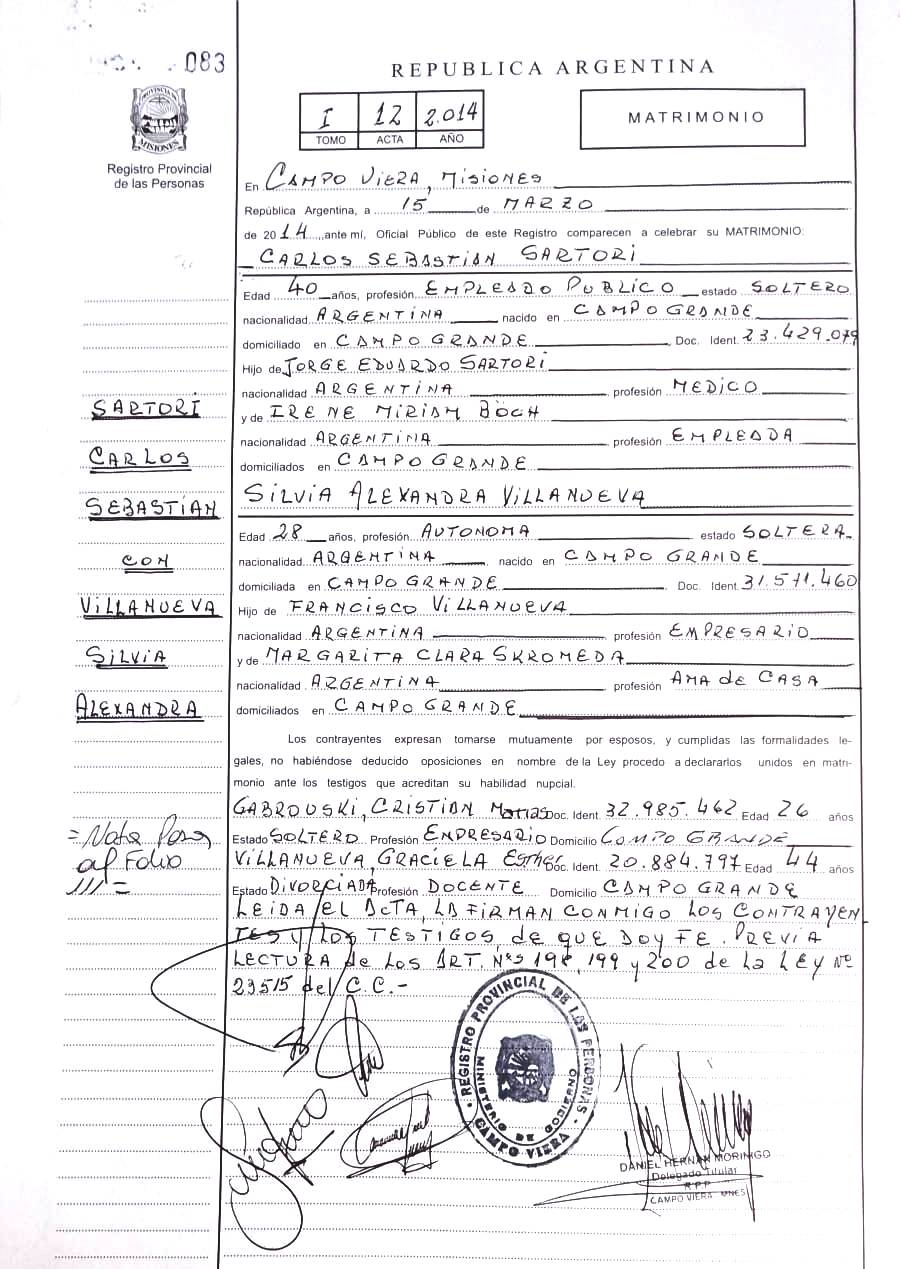 083
REPUBLICA ARGENTINA
I 12 2.014
TOMO ACTA AÑO
MATRIMONIO
PROVINCIA DE
MISIONES
Registro Provincial
de las Personas
En CAMPO VIERA, MISIONES
República Argentina, a 15 de MARZO
de 2014, ante mí, Oficial Público de este Registro comparecen a celebrar su MATRIMONIO:
CARLOS SEBASTIAN SARTORI
Edad 40 años, profesión EMPLEADO PUBLICO estado SOLTERO
nacionalidad ARGENTINA nacido en CAMPO GRANDE
domiciliado en CAMPO GRANDE Doc. Ident. 23.429.079
Hijo de JORGE EDUARDO SARTORI
nacionalidad ARGENTINA profesión MEDICO
y de IRENE MIRIAM BÖCH
nacionalidad ARGENTINA profesión EMPLEADA
domiciliados en CAMPO GRANDE
SILVIA ALEXANDRA VILLANUEVA
Edad 28 años, profesión AUTONOMA estado SOLTERA
nacionalidad ARGENTINA nacido en CAMPO GRANDE
domiciliada en CAMPO GRANDE Doc. Ident. 31.571.460
Hijo de FRANCISCO VILLANUEVA
nacionalidad ARGENTINA profesión EMPRESARIO
y de MARGARITA CLARA SKROMEDA
nacionalidad ARGENTINA profesión AMA de CASA
domiciliados en CAMPO GRANDE
SARTORI
CARLOS
SEBASTIAN
CON
VILLANUEVA
SILVIA
ALEXANDRA
Los contrayentes expresan tomarse mutuamente por esposos, y cumplidas las formalidades le-
gales, no habiéndose deducido oposiciones en nombre de la Ley procedo a declararlos unidos en matri-
monio ante los testigos que acreditan su habilidad nupcial.
GABROUSKI, CRISTIAN Matias Doc. Ident. 32.985.462 Edad 26 años
Estado SOLTERO Profesión EMPRESARIO Domicilio CAMPO GRANDE
VILLANUEVA, GRACIELA Esther Doc. Ident. 20.884.797 Edad 44 años
Estado DIVORCIADA Profesión DOCENTE Domicilio CAMPO GRANDE
LEIDA EL ACTA, LA FIRMAN CONMIGO LOS CONTRAYEN
TES Y LOS TESTIGOS, de que DOY FE. PREVIA
LECTURA de Los ART. Nºs 198, 199 y 200 de la LEY Nº
23515 del C.C.-
= Nota Pasa
al Folio
/// =
REGISTRO PROVINCIAL DE LAS PERSONAS
MINISTERIO DE GOBIERNO
CAMPO VIERA
DANIEL HERNAN MORINIGO
Delegado Titular
R.P.P
CAMPO VIERA